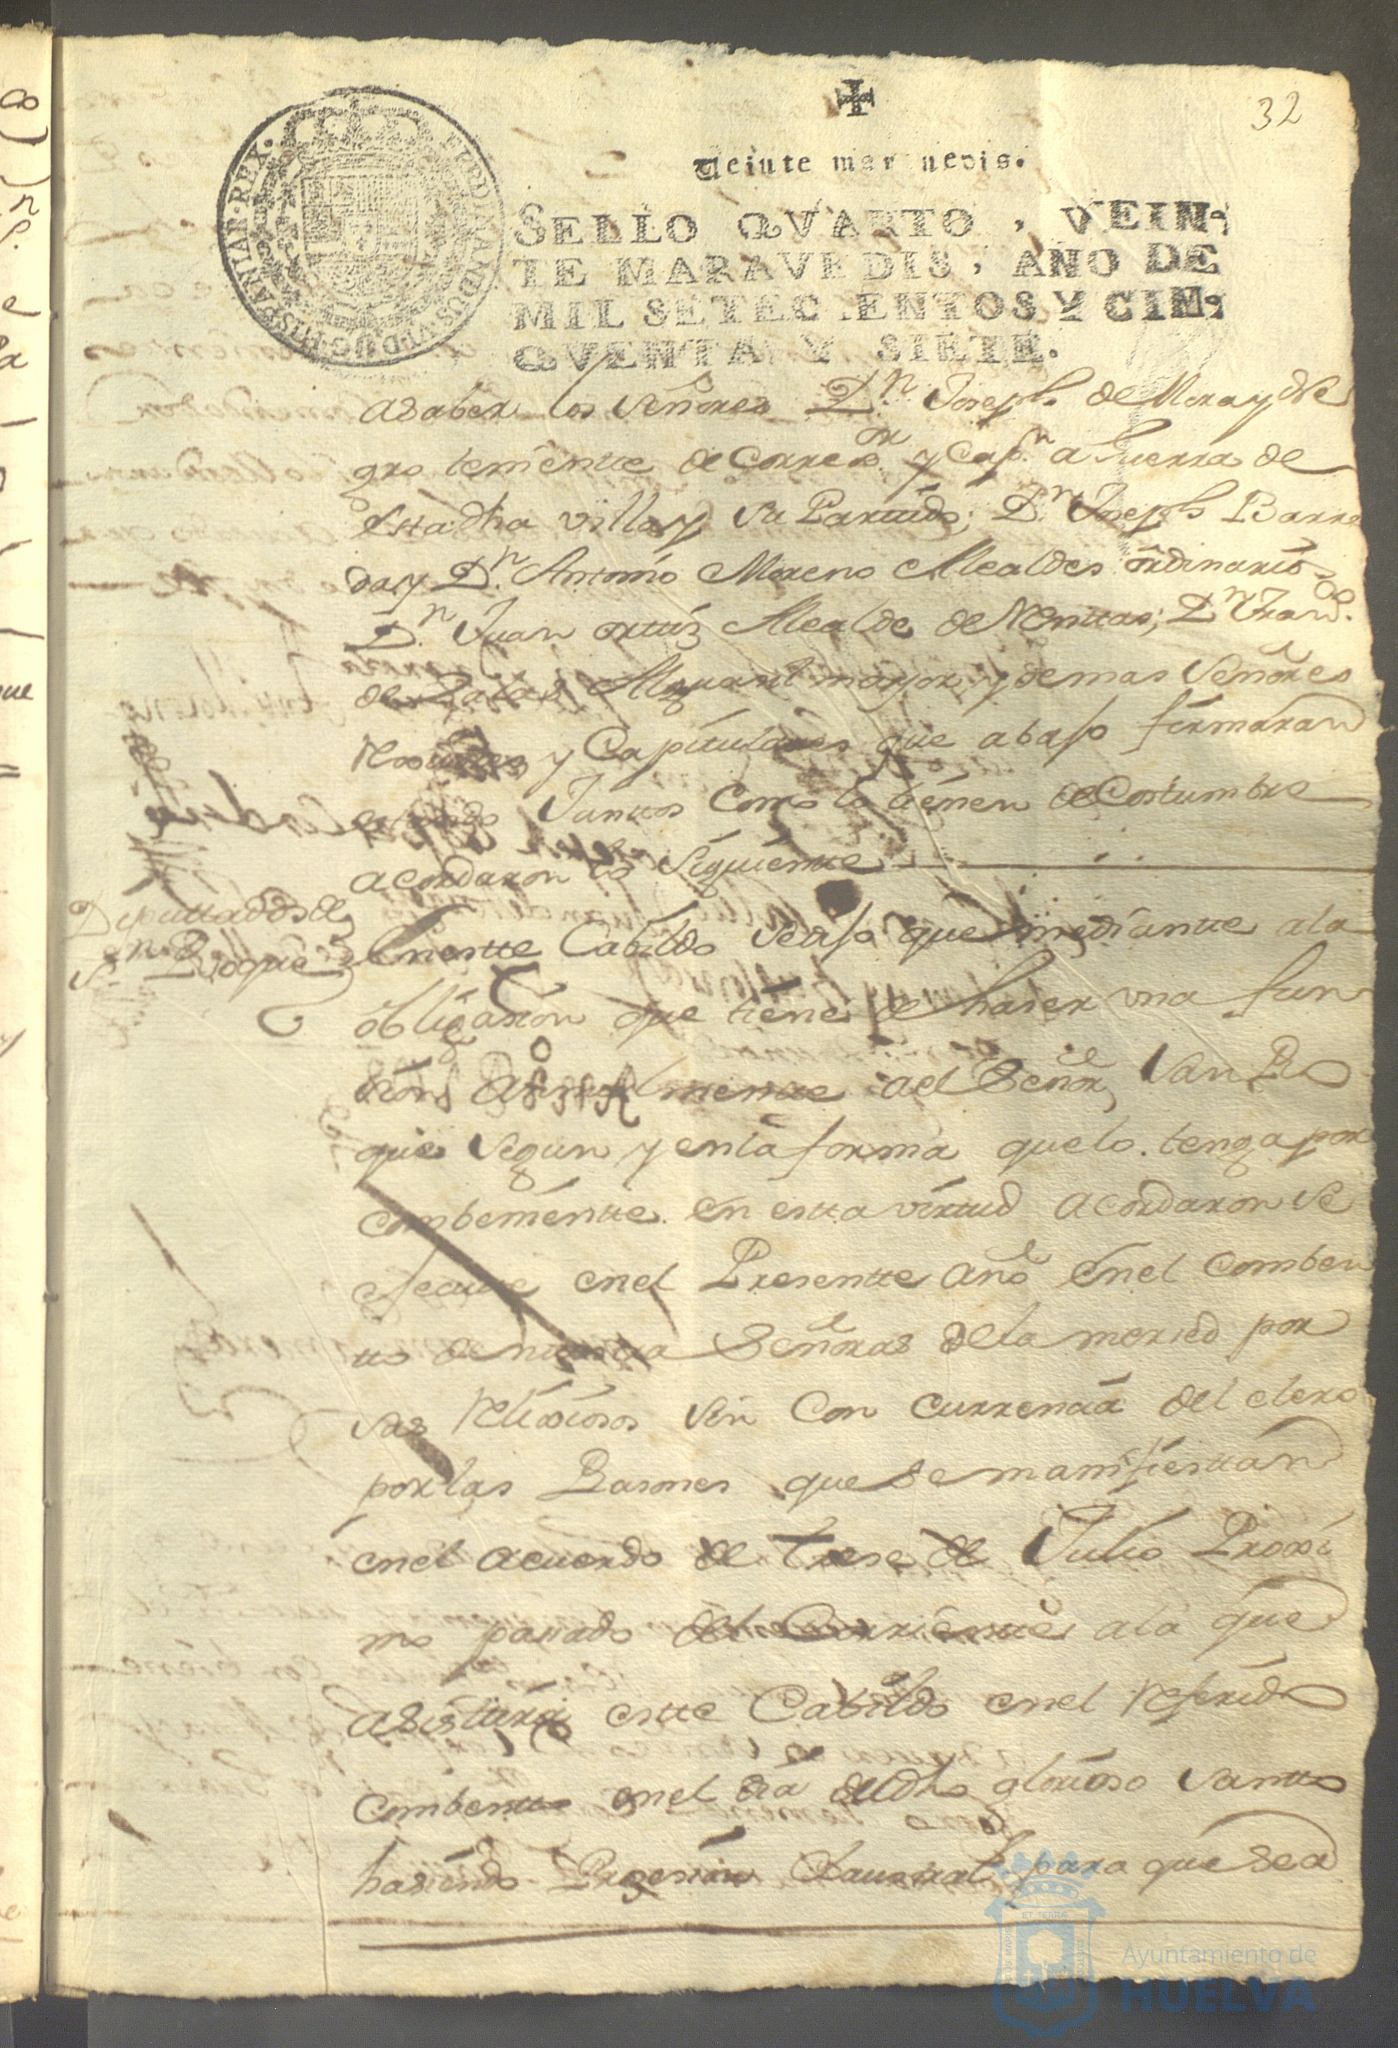 32
Veinte maravedis.
SELLO QVARTO, VEIN-
TE MARAVEDIS, AÑO DE
MIL SETECIENTOS Y CIN-
QVENTA Y SIETE.
HISPANIAR·REX·
FERDINANDUS·VI·D·G·
asaber los Señores Dn. Joseph de Mora y Ne
gro teniente de Corregor. y Capn. a Guerra de
esta dha villa y su Partido; Dn. Joseph Barre
da y Dn. Antonio Moreno Alcaldes ordinarios
Dn. Juan ortiz Alcalde de Millones; Dn. Franco.
de Alguasil mayor y demas Señores
y Capitulares que abajo firmaran
estando Juntos como lo tienen de Costumbre
acordaron lo Siguiente
Diputtados de
Sn. Roque
En este Cabildo Se diso que mediantte ala
obligasion que tiene de haser una fun
sion anualmente al Señor San Ro
que segun y en la forma que lo tenga por
combeniente en estta virtud acordaron se
efectue en el Presentte año En el Comben
tto de nuestra Señora de la merced por
sus relixiosos sin Con currencia del clero
por las Rasones que se manifiesttan
en el acuerdo de trese de Julio Proxi
mo passado del Corrientte a la que
asisttira estte Cabildo en el referido
combentto en el dia del dho glorioso Santto
hasiendo Prosesion Claustral para que sea
Ayuntamiento de
HUELVA